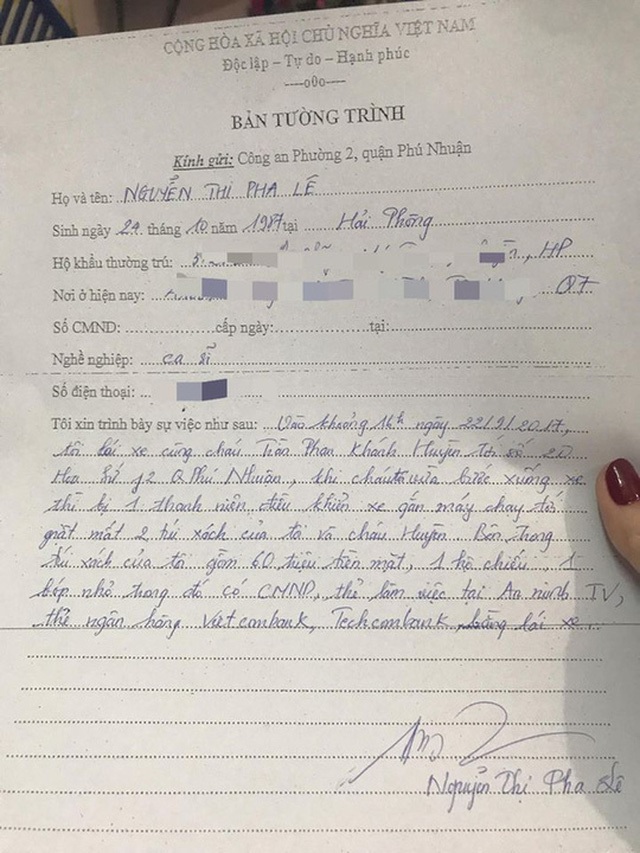 CỘNG HÒA XÃ HỘI CHỦ NGHĨA VIỆT NAM
Độc lập – Tự do – Hạnh phúc
-----o0o-----
BẢN TƯỜNG TRÌNH
Kính gửi: Công an Phường 2, quận Phú Nhuận
Họ và tên: NGUYỄN THỊ PHA LÊ
Sinh ngày 24 tháng 10 năm 1987 tại Hải Phòng
Hộ khẩu thường trú: , HP
Nơi ở hiện nay: Q7
Số CMND: cấp ngày: tại:
Nghề nghiệp: ca sĩ
Số điện thoại:
Tôi xin trình bày sự việc như sau: Vào khoảng 16h ngày 22/9/2017,
tôi lái xe cùng cháu Trần Phan Khánh Huyền tới số 20
Hoa Sứ f2 Q Phú Nhuận, khi cháu vừa bước xuống xe
thì bị 1 thanh niên điều khiển xe gắn máy chạy tới
giật mất 2 túi xách của tôi và cháu Huyền. Bên trong
túi xách của tôi gồm 60 triệu tiền mặt, 1 hộ chiếu, 1
bóp nhỏ trong đó có CMND, thẻ làm việc tại An ninh TV,
thẻ ngân hàng Vietcombank, Techcombank, bằng lái xe.
Nguyễn Thị Pha Lê